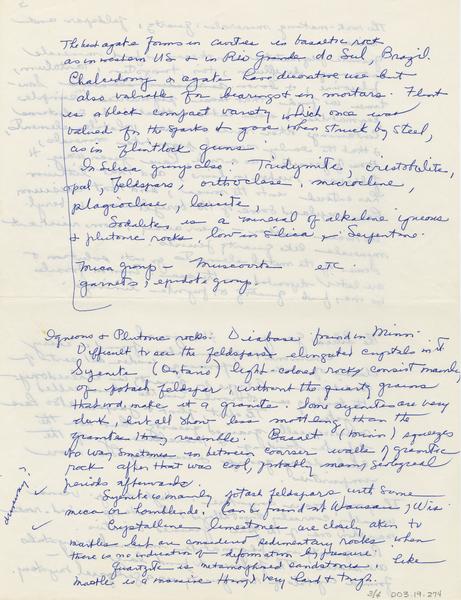 The best agate forms in cavities in basaltic rock
as in western US & in Rio Grande do Sul, Brazil.
Chalcedony or agate have decorative use but
also valuable for bearings & in mortars. Flint
is a black compact variety which once was
valued for the sparks it gave when struck by steel,
as in flintlock guns.
In Silica group also: Tridymite, cristobalite,
opal, feldspars, orthoclase, microcline,
plagioclase, leucite,
Sodalite, is a mineral of alkaline igneous
& plutonic rocks, low in silica, Serpentine.
Mica group - Muscovite etc.
garnets, epidote group.
Igneous & Plutonic rocks: Diabase found in Minn.
Difficult to see the feldspars elongated crystals in it
Syenite (Ontario) light-colored rocks consist mainly
of potash feldspar, without the quartz grains
that wd. make it a granite. Some syenites are very
dark, but all show less mottling than the
granites they resemble. Basalt (Minn) squeezes
its way sometimes in between coarser walls of granitic
rock after that was cool, probably many geological
periods afterwards.
Syenite is mainly potash feldspars with some
mica or hornblende. Can be found at Wausau, Wis.
Crystalline limestones are closely akin to
marbles but are considered sedimentary rocks when
there is no indication of deformation by pressure.
Quartzite is metamorphosed sandstone. Like
marble is a massive thing, very hard & tough.
003.19.274